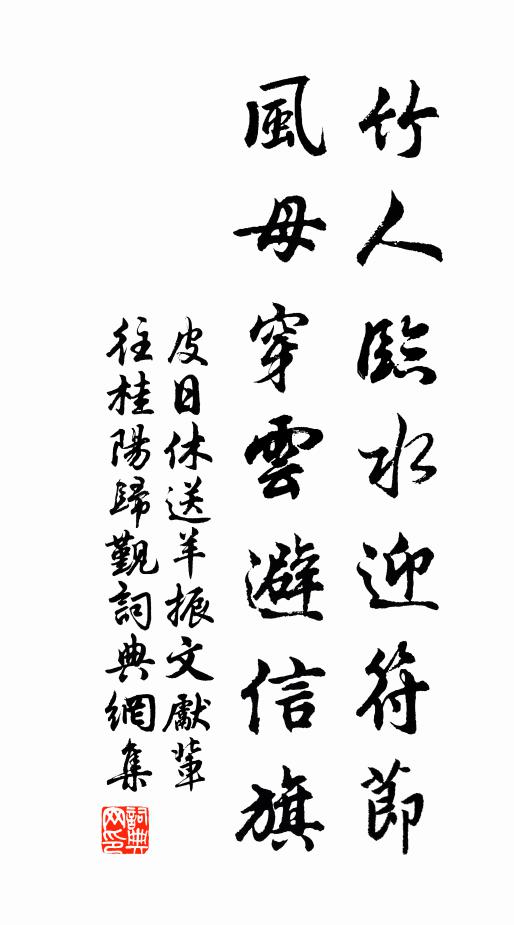 竹人臨水迎符節
風母穿雲避信旗
皮日休送羊振文獻輩
往桂陽歸覲詞典網集
詞典
网印